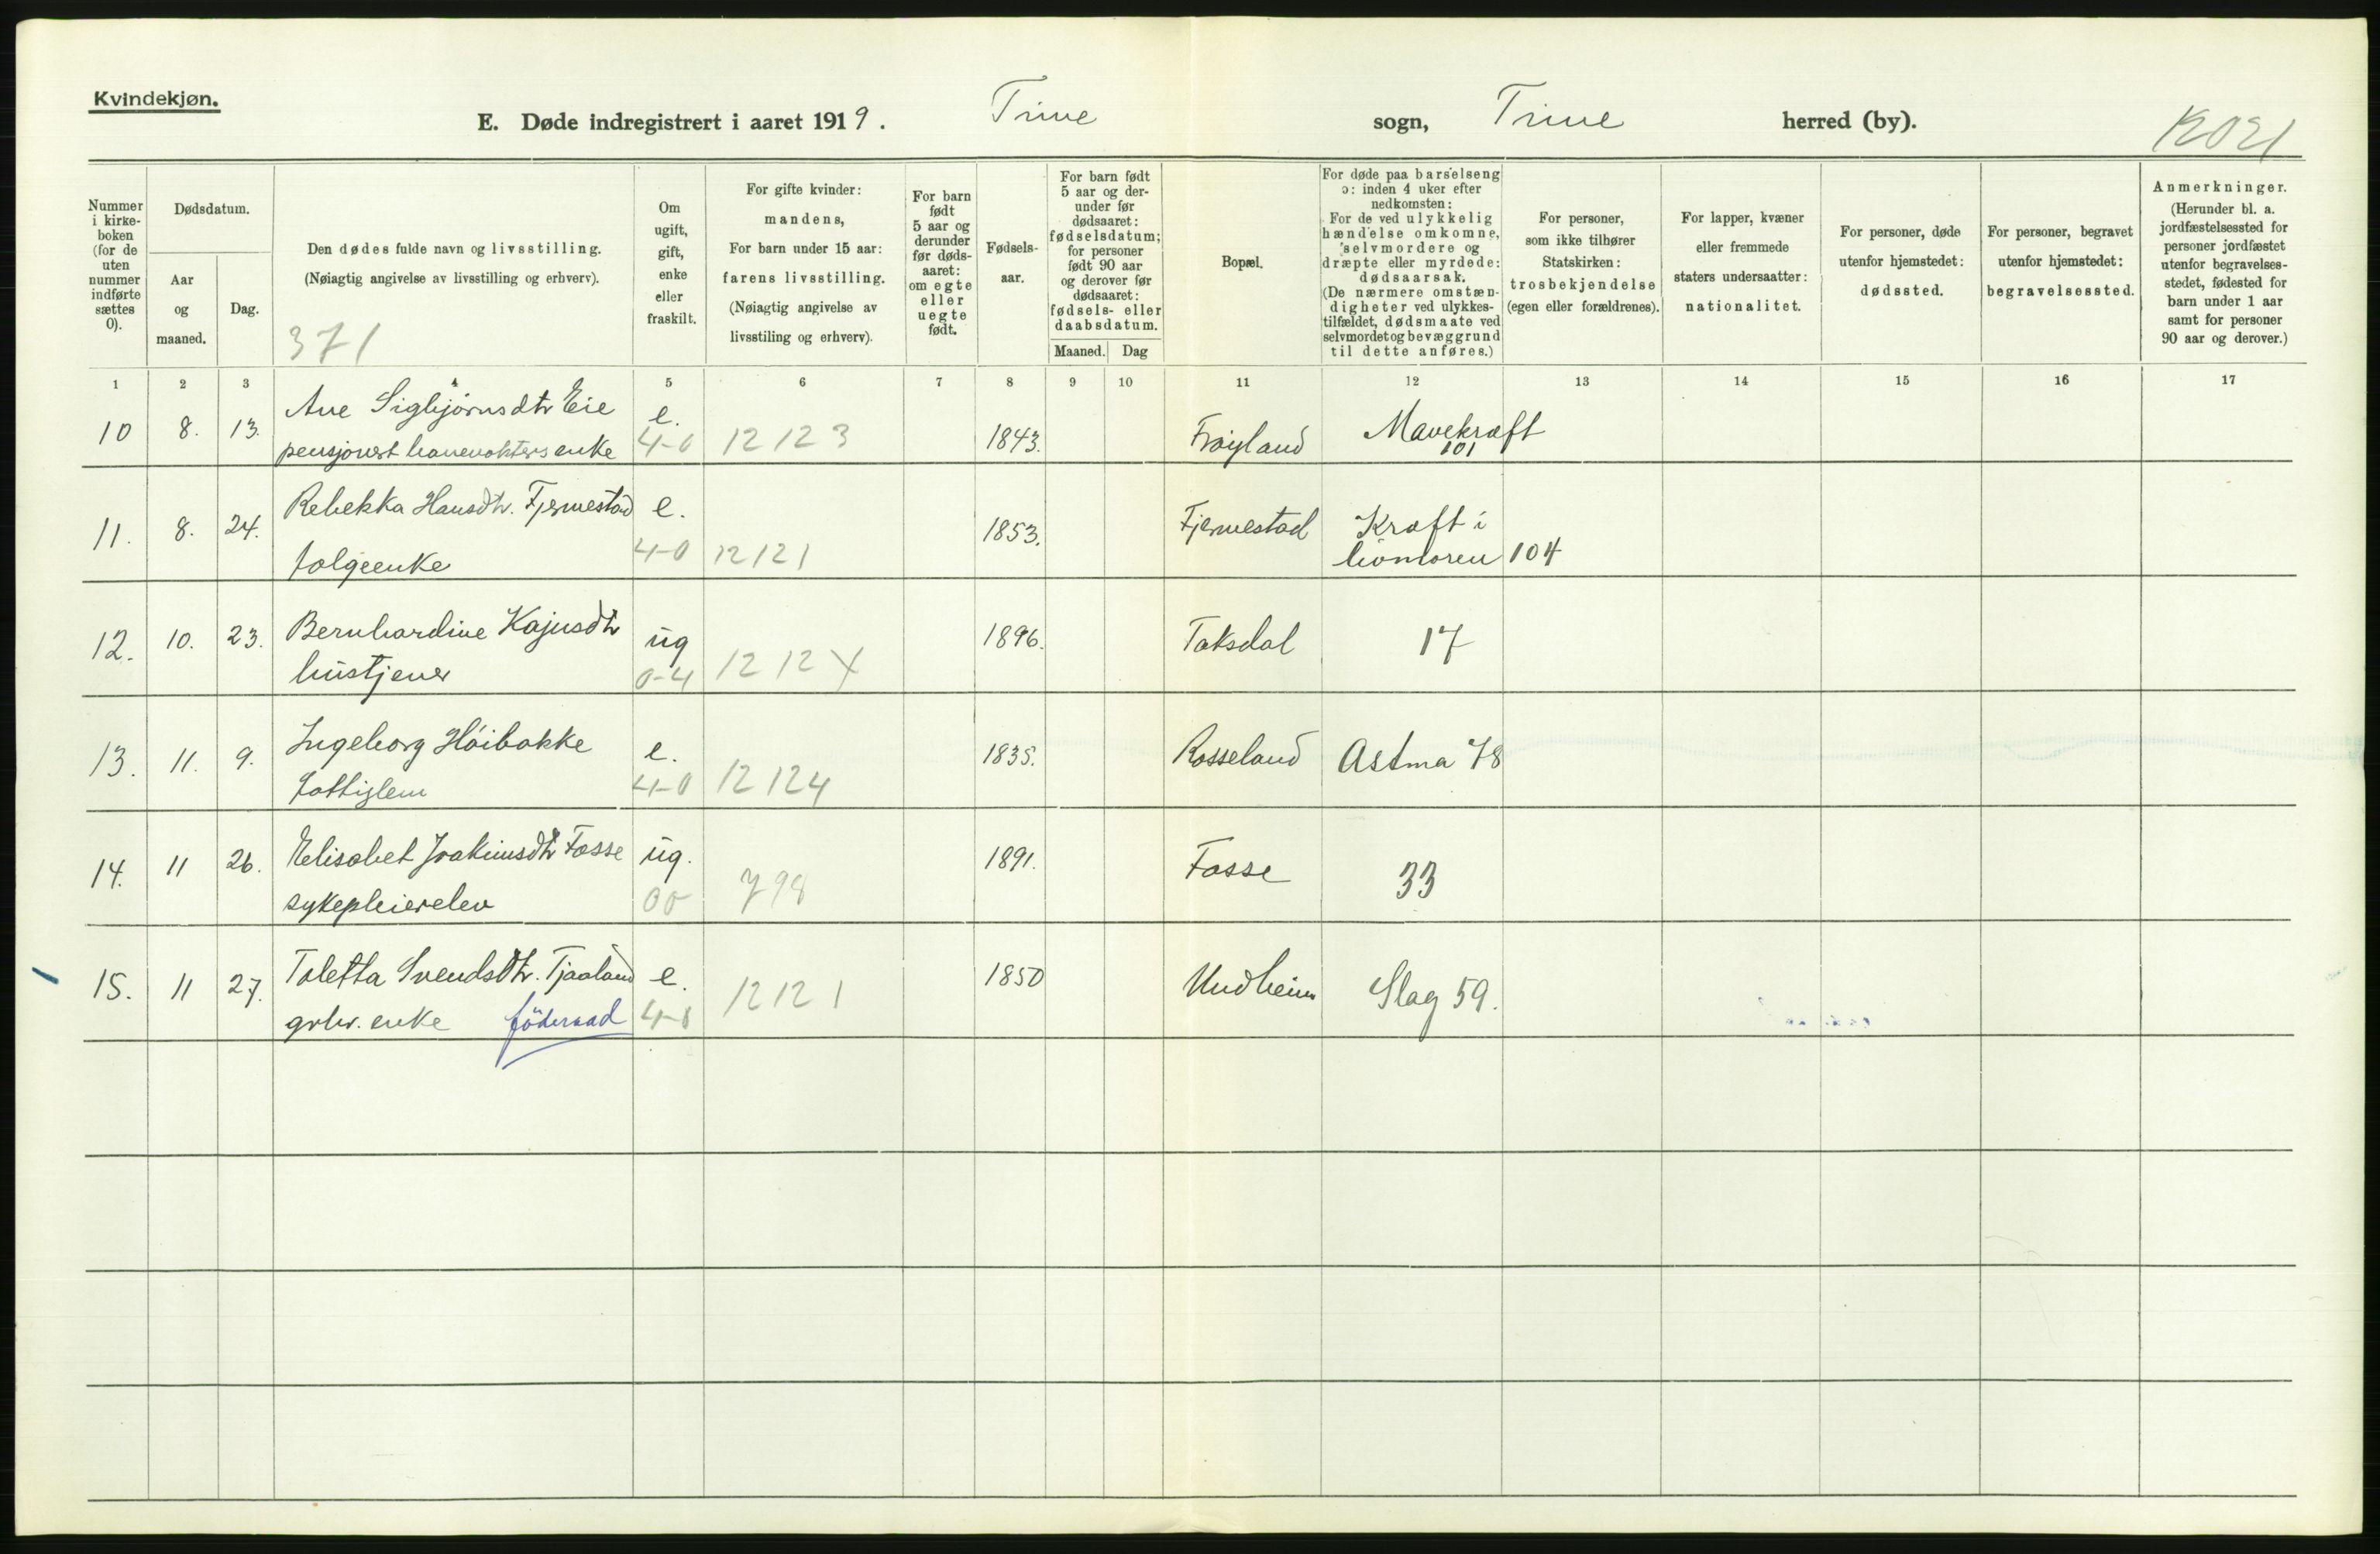 Kvindekjøn.
E. Døde indregistrert i aaret 1919. Time sogn, Time herred (by).
1221
Nummer i kirkeboken (for de uten nummer indførte sættes 0).
Dødsdatum.
Aar og maaned.
Dag.
Den dødes fulde navn og livsstilling.
(Nøiagtig angivelse av livsstilling og erhverv).
371
Om ugift, gift, enke eller fraskilt.
For gifte kvinder:
mandens,
For barn under 15 aar:
farens livsstilling.
(Nøiagtig angivelse av
livsstiling og erhverv).
For barn født 5 aar og derunder før dødsaaret: om egte eller uegte født.
Fødselsaar.
For barn født 5 aar og derunder før dødsaaret: fødselsdatum; for personer født 90 aar og derover før dødsaaret: fødsels- eller daabsdatum.
Maaned. Dag
Bopæl.
For døde paa barselseng
ɔ: inden 4 uker efter
nedkomsten:
For de ved ulykkelig
hændelse omkomne,
selvmordere og
dræpte eller myrdede:
dødsaarsak.
(De nærmere omstæn-
digheter ved ulykkes-
tilfældet, dødsmaate ved
selvmordet og bevæggrund
til dette anføres.)
For personer,
som ikke tilhører
Statskirken:
trosbekjendelse
(egen eller forældrenes).
For lapper, kvæner
eller fremmede
staters undersaatter:
nationalitet.
For personer, døde
utenfor hjemstedet:
dødssted.
For personer, begravet
utenfor hjemstedet:
begravelsessted.
Anmerkninger.
(Herunder bl. a.
jordfæstelsessted for
personer jordfæstet
utenfor begravelses-
stedet, fødested for
barn under 1 aar
samt for personer
90 aar og derover.)
1 2 3 4 5 6 7 8 9 10 11 12 13 14 15 16 17
10 8. 13. Ane Sigbjørnsdtr Eie e. 1843. Frøyland Mavekræft
pensjonert banevokters enke 4-0 12 123 101
11. 8. 24. Rebekka Hansdtr. Fjermestad e. 1853. Fjermestad Kræft i
folgeenke 4-0 12 121 104
12. 10. 23. Bernhardine Kajusdtr ug 1896. Taksdal 17
hustjener 0-4 12 12 X
13. 11. 9. Ingeborg Høibakke e. 1835. Rosseland Astma 78
fattiglem 4-0 12 124
14. 11 26. Elisabet Joakimsdtr Fosse ug. 1891. Fosse 33
sykepleierelev 00 798
15. 11 27. Toletta Svendsdtr. Tjaaland e. 1850 Undheim Slag 59.
grbr. enke föderaad 4-0 12 121